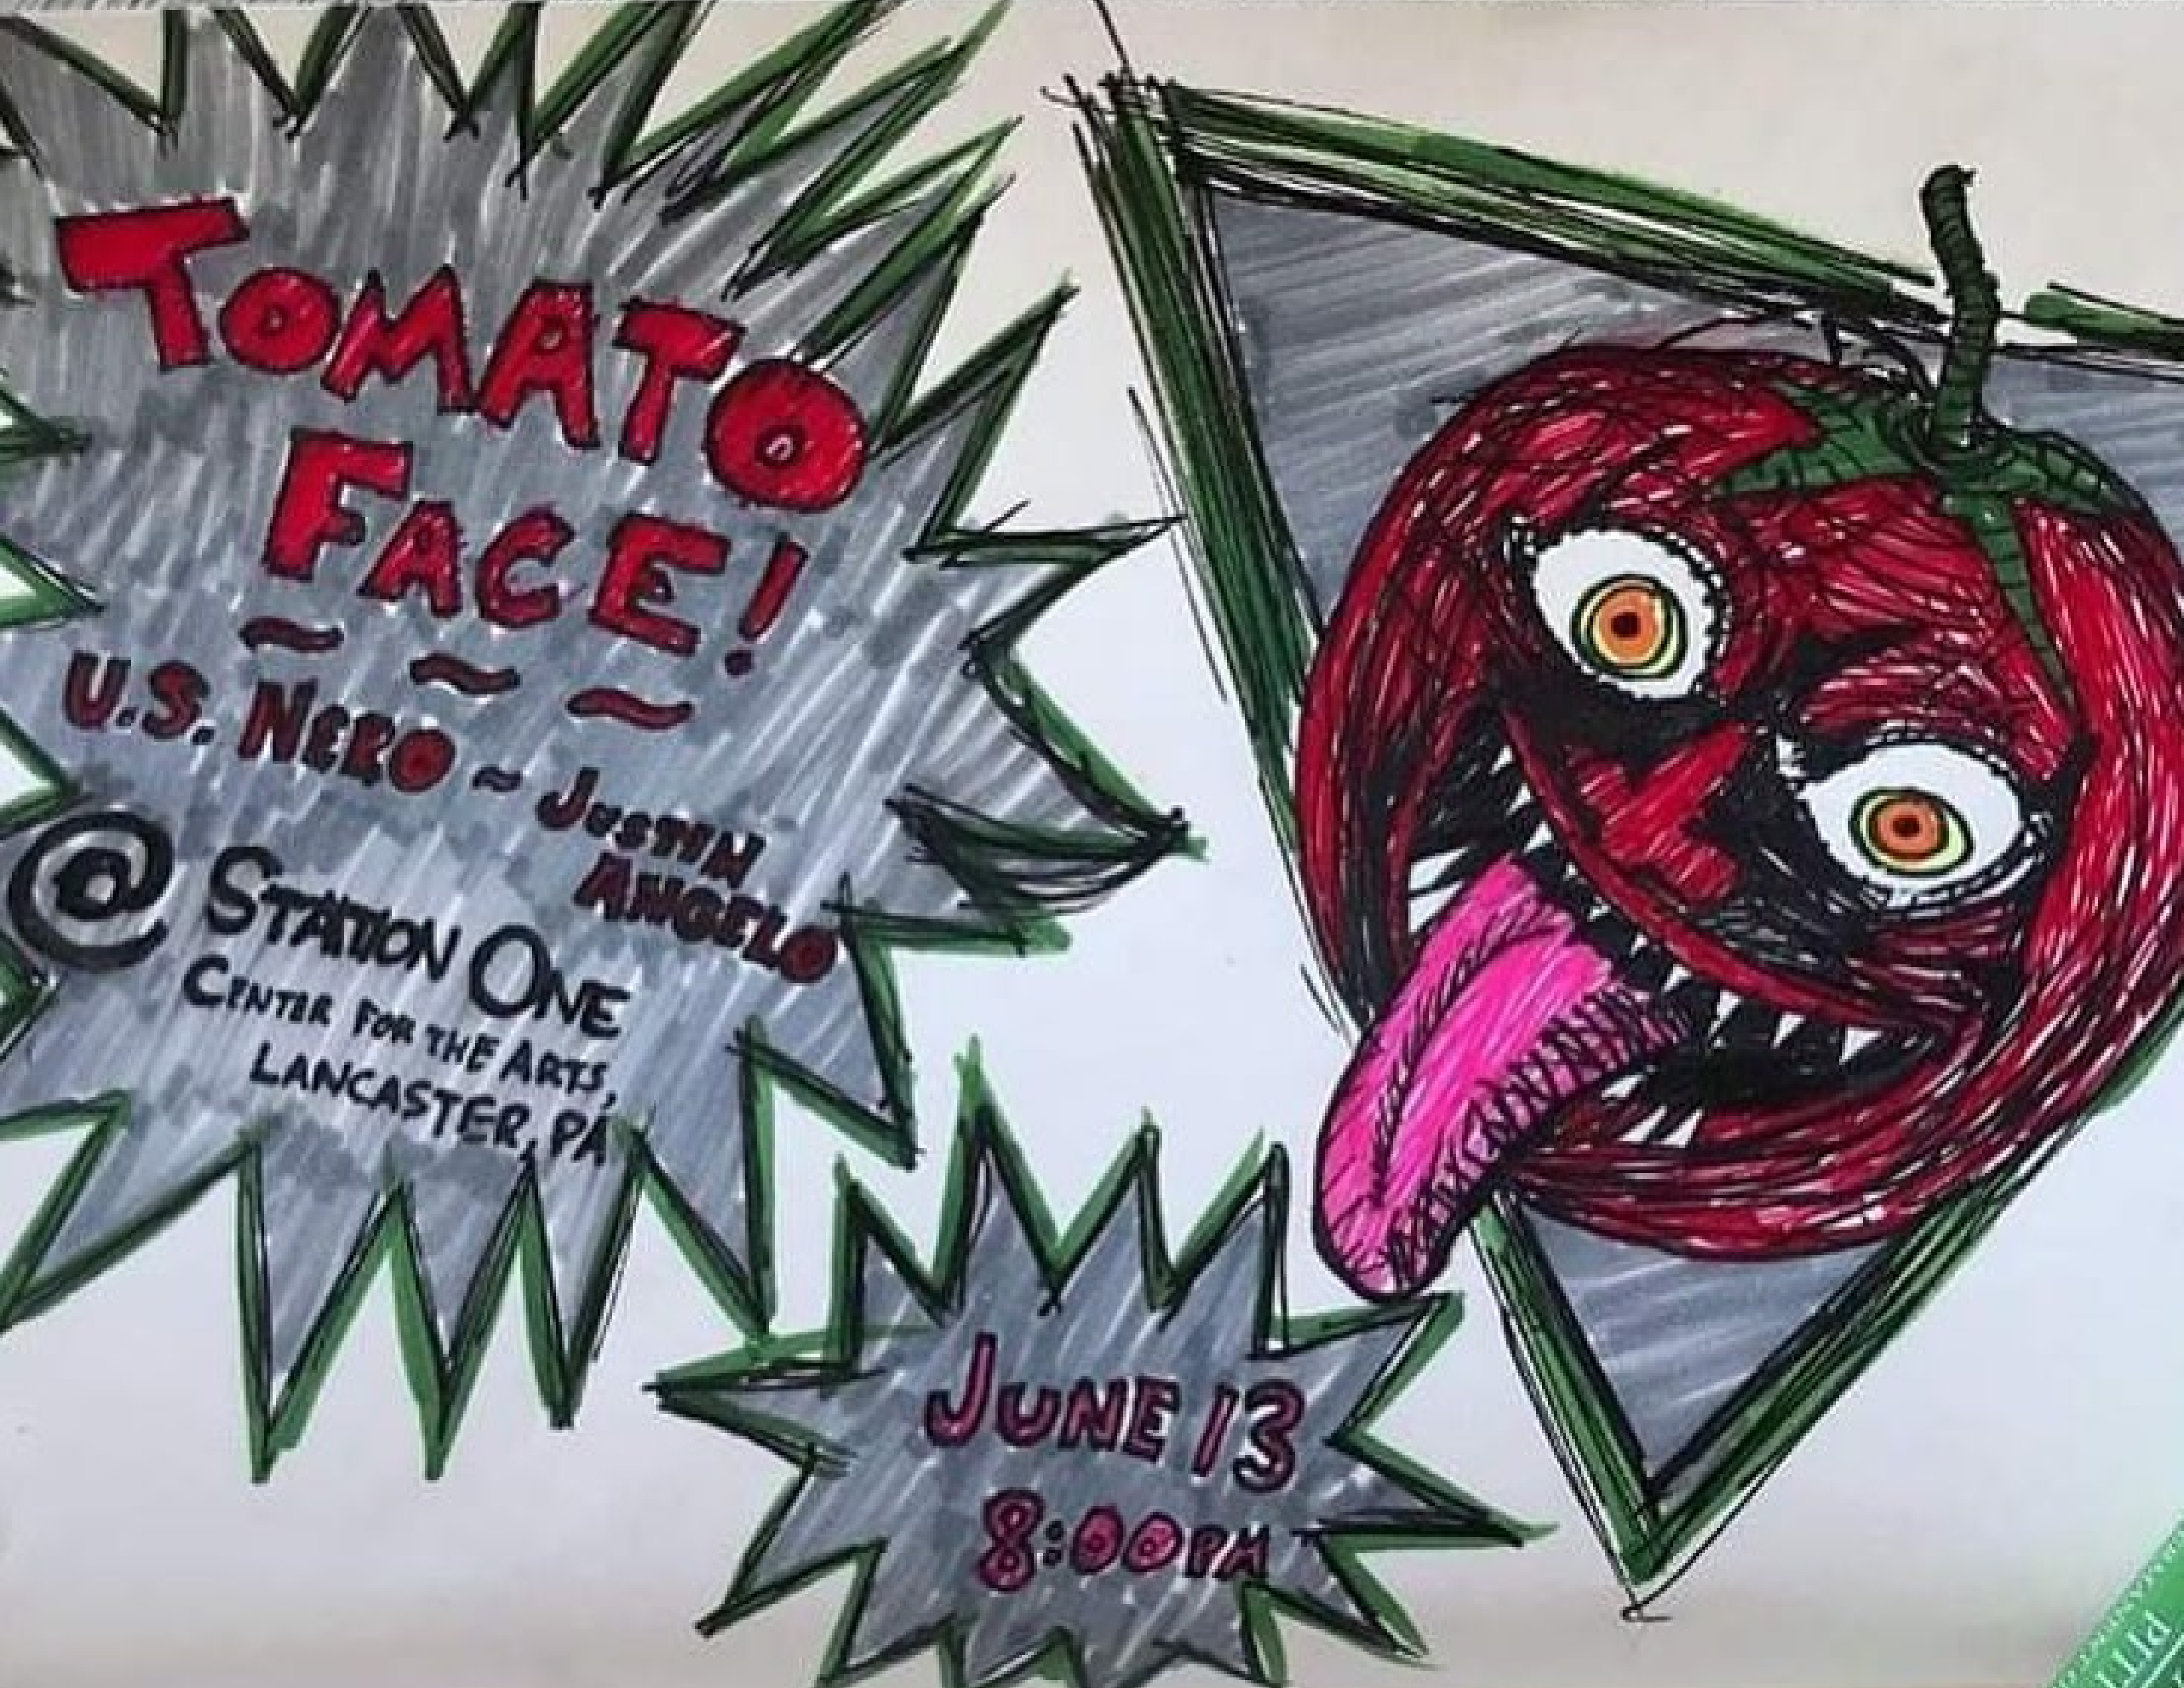 TOMATO
FACE!
~ ~ ~
U.S. NERO ~ JUSTIN
ANGELO
@ STATION ONE
CENTER FOR THE ARTS,
LANCASTER, PA
JUNE 13
8:00PM